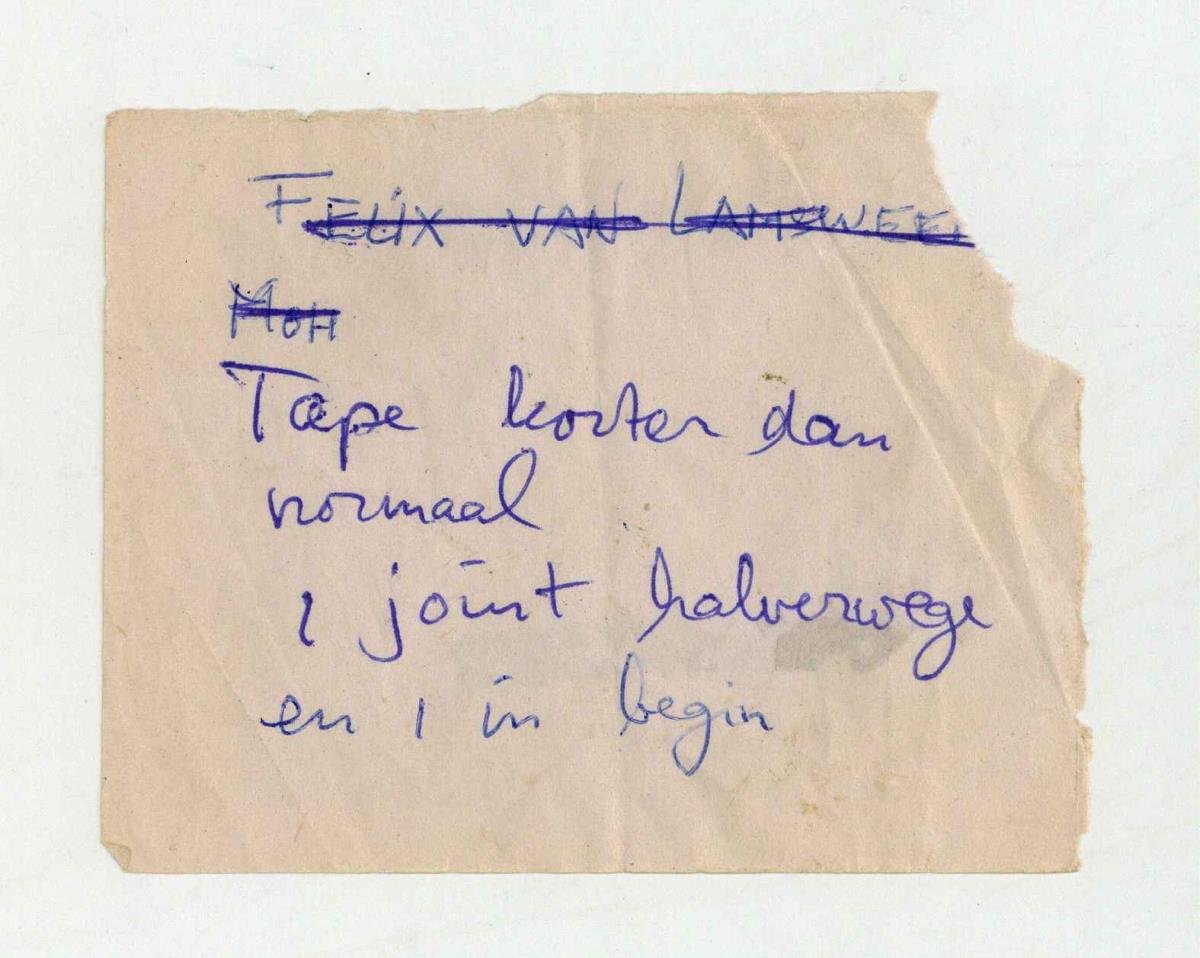 FELIX VAN LAMSWEE
MOH
Tape korter dan
normaal
1 joint halverwege
en 1 in begin